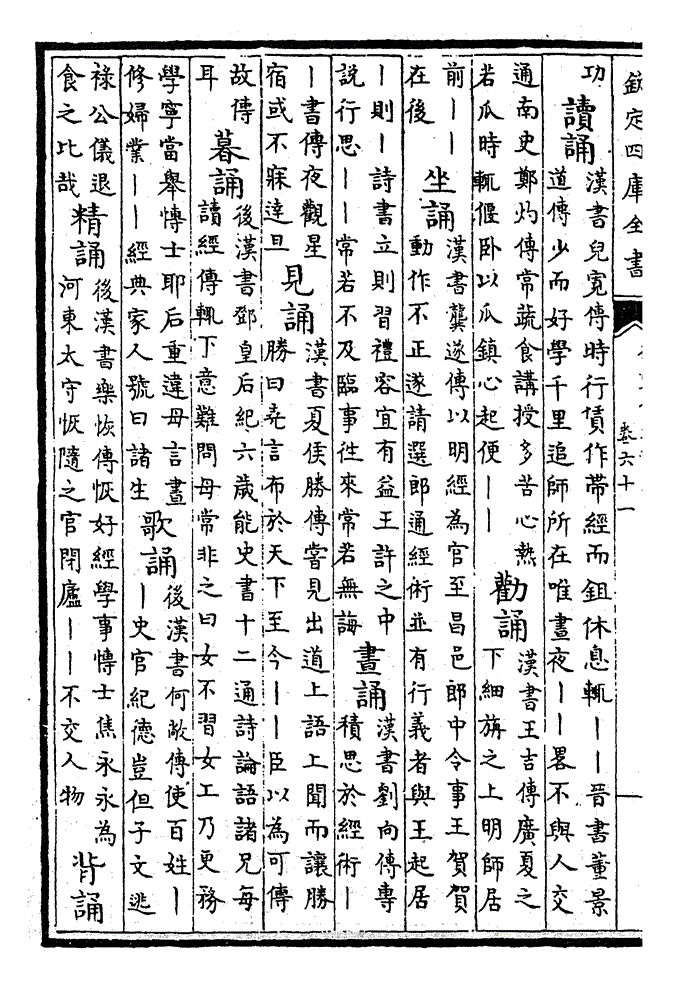 欽定四庫全書
卷六十一
功
讀誦
漢書兒寛傳時行賃作帶經而鉏休息輒丨丨晉書董景
道傳少而好學千里追師所在唯晝夜丨丨畧不與人交
通南史鄭灼傳常蔬食講授多苦心熱
若瓜時輒偃卧以瓜鎮心起便丨丨
勸誦
漢書王吉傳廣夏之
下細旃之上明師居
前丨丨
在後
坐誦
漢書龔遂傳以明經為官至昌邑郎中令事王賀賀
動作不正遂請選郎通經術並有行義者與王起居
丨則丨詩書立則習禮容宜有益王許之中
說行思丨丨常若不及臨事徃來常若無誨
晝誦
漢書劉向傳專
積思於經術丨
丨書傳夜觀星
宿或不寐達旦
見誦
漢書夏侯勝傳嘗見出道上語上聞而讓勝
勝曰堯言布於天下至今丨丨臣以為可傳
故傳
耳
暮誦
後漢書鄧皇后紀六歲能史書十二通詩論語諸兄每
讀經傳輒下意難問母常非之曰女不習女工乃更務
學寧當舉博士耶后重違母言晝
修婦業丨丨經典家人號曰諸生
歌誦
後漢書何敞傳使百姓丨
丨史官紀德豈但子文逃
祿公儀退
食之比哉
精誦
後漢書樂恢傳恢好經學事博士焦永永為
河東太守恢隨之官閉廬丨丨不交人物
背誦